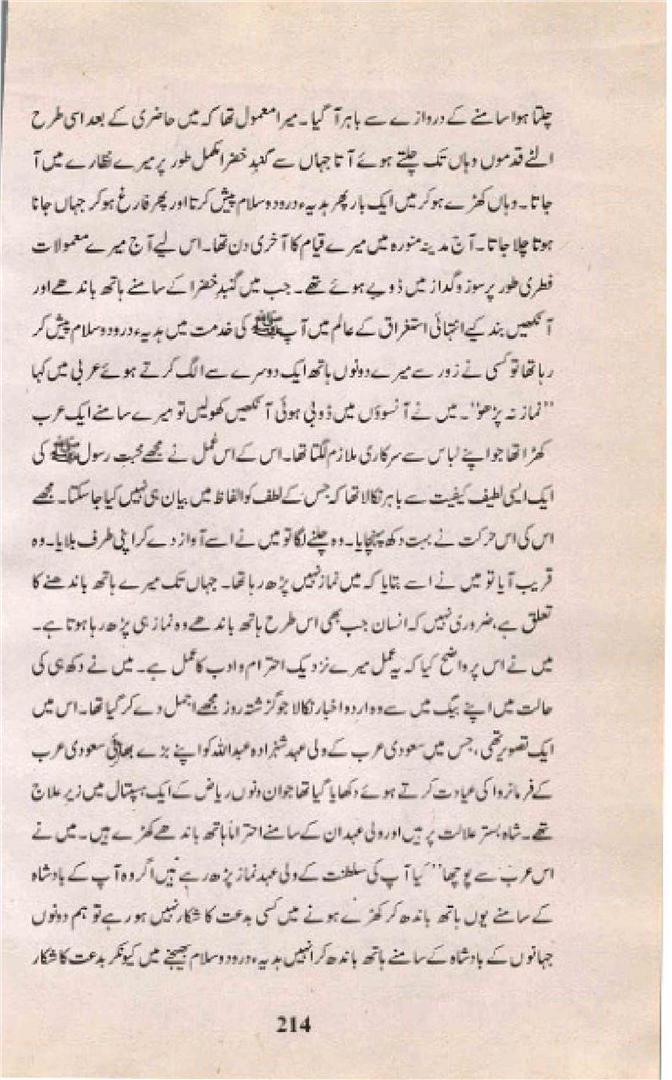 چلتا ہوا سامنے کے دروازے سے باہر آ گیا۔ میرا معمول تھا کہ میں حاضری کے بعد اسی طرح
الٹے قدموں وہاں تک چلتے ہوئے آتا جہاں سے گنبدِ خضرا مکمل طور پر میرے نظارے میں آ
جاتا۔ وہاں کھڑے ہو کر میں ایک بار پھر ہدیہء درود و سلام پیش کرتا اور پھر فارغ ہو کر جہاں جانا
ہوتا چلا جاتا۔ آج مدینہ منورہ میں میرے قیام کا آخری دن تھا۔ اس لیے آج میرے معمولات
فطری طور پر سوز و گداز میں ڈوبے ہوئے تھے۔ جب میں گنبدِ خضرا کے سامنے ہاتھ باندھے اور
آنکھیں بند کیے انتہائی استغراق کے عالم میں آپ ﷺ کی خدمت میں ہدیہء درود و سلام پیش کر
رہا تھا تو کسی نے زور سے میرے دونوں ہاتھ ایک دوسرے سے الگ کرتے ہوئے عربی میں کہا
”نماز نہ پڑھو“۔ میں نے آنسوؤں میں ڈوبی ہوئی آنکھیں کھولیں تو میرے سامنے ایک عرب
کھڑا تھا جو اپنے لباس سے سرکاری ملازم لگتا تھا۔ اس کے اس عمل نے مجھے محبتِ رسول ﷺ کی
ایک ایسی لطیف کیفیت سے باہر نکالا تھا کہ جس کے لطف کو الفاظ میں بیان ہی نہیں کیا جا سکتا۔ مجھے
اس کی اس حرکت نے بہت دکھ پہنچایا۔ وہ چلنے لگا تو میں نے اسے آواز دے کر اپنی طرف بلایا۔ وہ
قریب آیا تو میں نے اسے بتایا کہ میں نماز نہیں پڑھ رہا تھا۔ جہاں تک میرے ہاتھ باندھنے کا
تعلق ہے، ضروری نہیں کہ انسان جب بھی اس طرح ہاتھ باندھے وہ نماز ہی پڑھ رہا ہوتا ہے۔
میں نے اس پر واضح کیا کہ یہ عمل میرے نزدیک احترام و ادب کا عمل ہے۔ میں نے دکھ ہی کی
حالت میں اپنے بیگ میں سے وہ اردو اخبار نکالا جو گزشتہ روز مجھے اجمل دے کر گیا تھا۔ اس میں
ایک تصویر تھی، جس میں سعودی عرب کے ولی عہد شہزادہ عبداللہ کو اپنے بڑے بھائی سعودی عرب
کے فرمانروا کی عیادت کرتے ہوئے دکھایا گیا تھا جو ان دنوں ریاض کے ایک ہسپتال میں زیرِ علاج
تھے۔ شاہ بسترِ علالت پر ہیں اور ولی عہد ان کے سامنے احتراماً ہاتھ باندھے کھڑے ہیں۔ میں نے
اس عرب سے پوچھا ”کیا آپ کی سلطنت کے ولی عہد نماز پڑھ رہے ہیں اگر وہ آپ کے بادشاہ
کے سامنے یوں ہاتھ باندھ کر کھڑے ہونے میں کسی بدعت کا شکار نہیں ہو رہے تو ہم دونوں
جہانوں کے بادشاہ کے سامنے ہاتھ باندھ کر انہیں ہدیہء درود و سلام بھیجنے میں کیونکر بدعت کا شکار
214